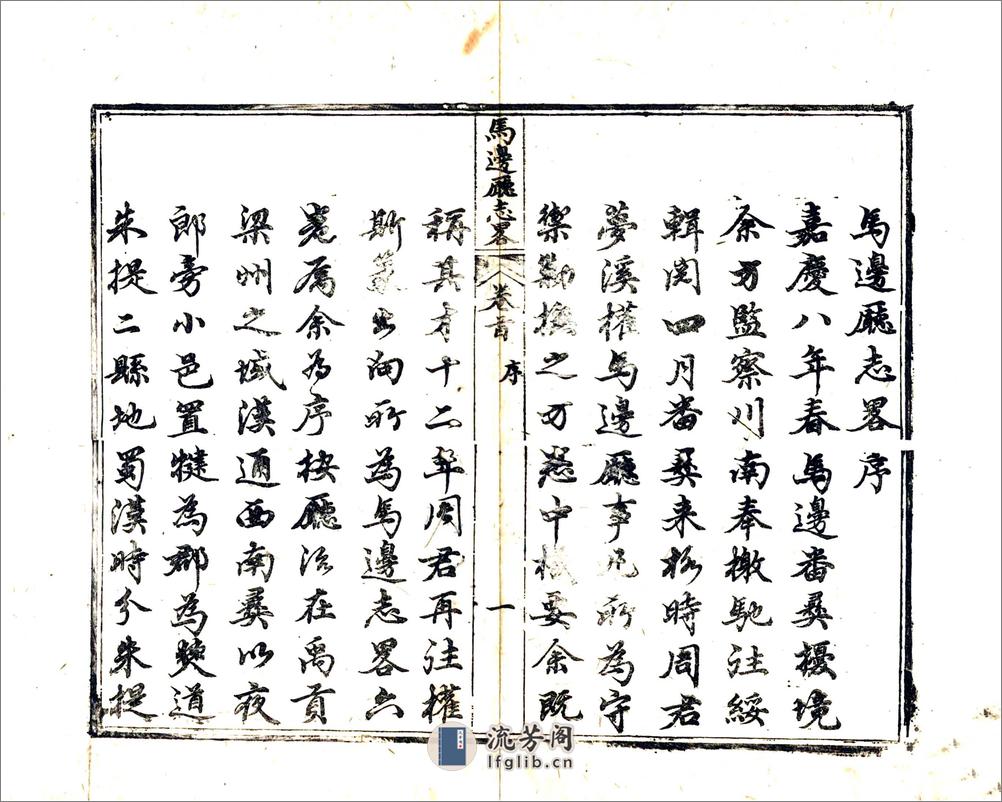 馬邊廳志畧序
嘉慶八年春馬邊畨彝擾境
余方監察川南奉檄馳往綏
輯閱四月畨彝来栘時周君
夢溪權馬邊廳事凡所為守
禦勦撫之方悉中機要余既
馬邊廳志畧 卷首 序 一
稱其才十二年周君再往權
斯篆出向所為馬邊志畧六
卷属余為序按廳治在禹貢
梁州之域漢通西南彝以夜
郎旁小邑置犍為郡為僰道
朱提二縣地蜀漢時分朱提
流芳阁
lfglib.cn